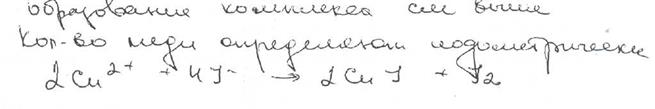 образование комплекса см выше
Кол-во меди определяют иодометрически
2Cu²⁺ + 4J⁻ → 2CuJ + J₂